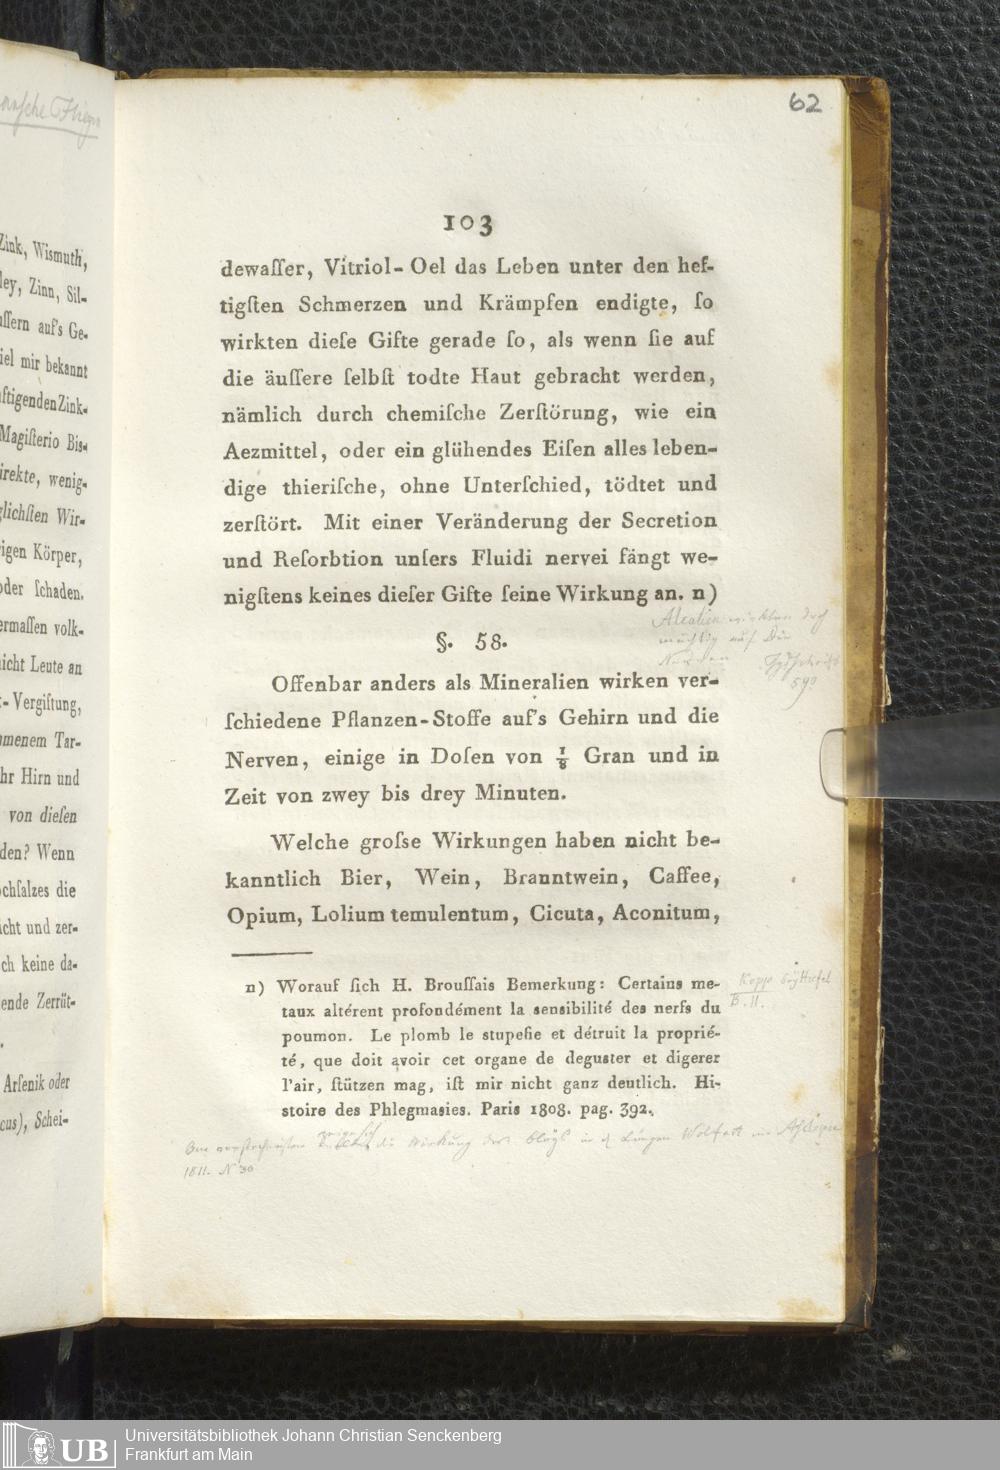 62
103
dewaſſer, Vitriol-Oel das Leben unter den hef-
tigſten Schmerzen und Krämpfen endigte, ſo
wirkten dieſe Gifte gerade ſo, als wenn ſie auf
die äuſſere ſelbſt todte Haut gebracht werden,
nämlich durch chemiſche Zerſtörung, wie ein
Aezmittel, oder ein glühendes Eiſen alles leben-
dige thieriſche, ohne Unterſchied, tödtet und
zerſtört. Mit einer Veränderung der Secretion
und Reſorbtion unſers Fluidi nervei fängt we-
nigſtens keines dieſer Gifte ſeine Wirkung an. n)
§. 58.
Offenbar anders als Mineralien wirken ver-
ſchiedene Pflanzen-Stoffe auf's Gehirn und die
Nerven, einige in Doſen von ⅛ Gran und in
Zeit von zwey bis drey Minuten.
Welche groſse Wirkungen haben nicht be-
kanntlich Bier, Wein, Branntwein, Caffee,
Opium, Lolium temulentum, Cicuta, Aconitum,
n) Worauf ſich H. Brouſſais Bemerkung: Certains me-
taux altérent profondément la sensibilité des nerfs du
poumon. Le plomb le stupefie et détruit la proprié-
té, que doit avoir cet organe de deguster et digerer
l'air, ſtützen mag, iſt mir nicht ganz deutlich. Hi-
stoire des Phlegmasies. Paris 1808. pag. 392.
B. II.
1811. N 30
Zink, Wismuth,
ley, Zinn, Sil-
uſſern auf's Ge-
iel mir bekannt
ftigenden Zink-
Magiſterio Bis-
irekte, wenig-
glichſten Wir-
rigen Körper,
oder ſchaden.
ermaſſen volk-
nicht Leute an
t-Vergiftung,
mmenem Tar-
hr Hirn und
von dieſen
den? Wenn
ochſalzes die
icht und zer-
ch keine da-
ende Zerrüt-
Arſenik oder
cus), Schei-
UB
Universitätsbibliothek Johann Christian Senckenberg
Frankfurt am Main